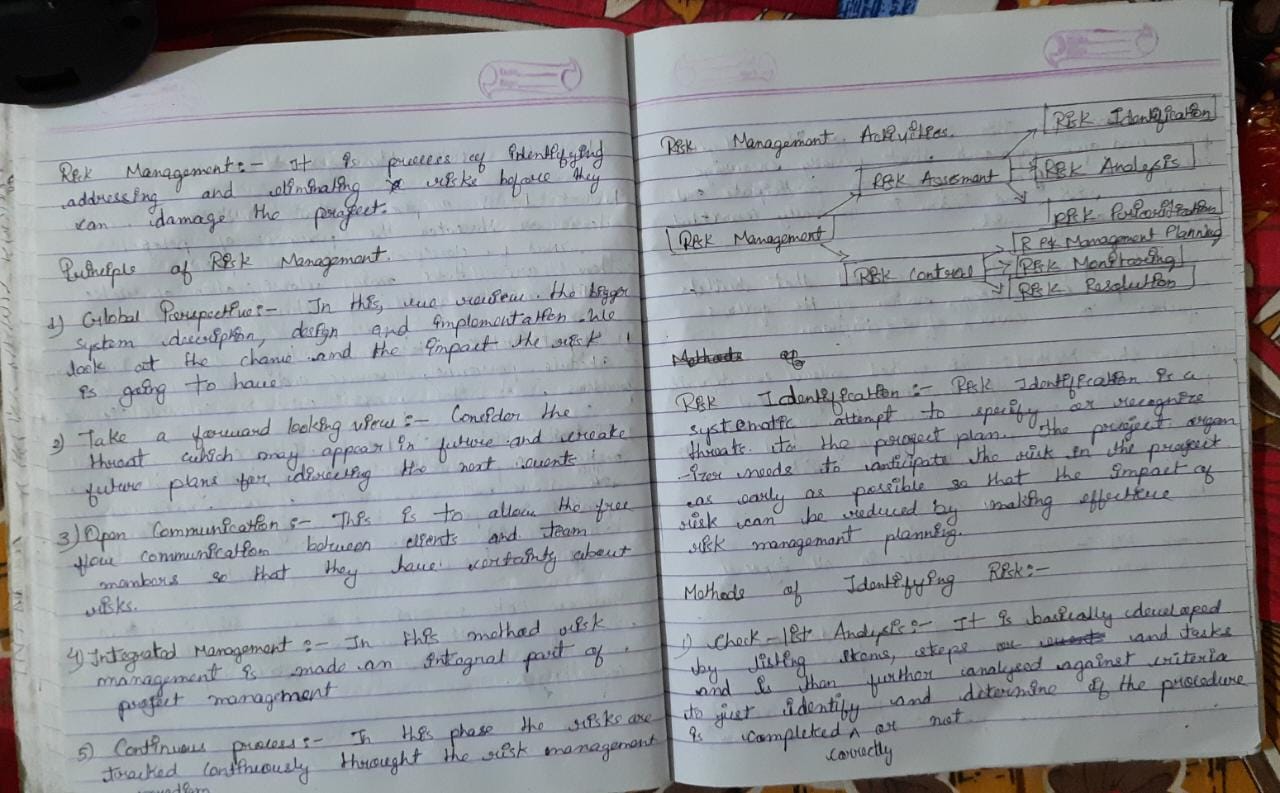 Risk Management:- It is process of identifying
addressing and eliminating risks before they
can damage the project.
Principle of Risk Management.
1) Global Perspective:- In this, we review the bigger
system description, design and implementation. We
look at the chance and the impact the risk
is going to have
2) Take a forward looking view:- Consider the
threat which may appear in future and create
future plans for directing the next events
3) Open Communication:- This is to allow the free
flow communication between clients and team
members so that they have certainty about
risks.
4) Integrated Management:- In this method risk
management is made an integral part of
project management
5) Continuous process:- In this phase the risks are
tracked continuously throught the risk management
Risk Management Activities.
Risk Identification
Risk Assesment
Risk Analysis
Risk Management
Risk Management Planning
Risk Control
Risk Monitoring
Risk Resolution
Methods of
Risk Identification:- Risk Identification is a
systematic attempt to specify or recognize
threats to the project plan. The project organ
-izer needs to anticipate the risk in the project
as early as possible so that the impact of
risk can be reduced by making effective
risk management planning.
Methods of Identifying Risk:-
1) Check-list Analysis:- It is basically developed
by listing items, steps or events and tasks
and is then further analysed against criteria
to just identify and determine if the procedure
is completed ^ or not
correctly